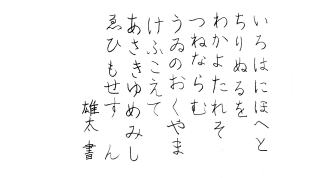 いろはにほへと
ちりぬるを
わかよたれそ
つねならむ
うゐのおくやま
けふこえて
あさきゆめみし
ゑひもせす ん
雄太 書